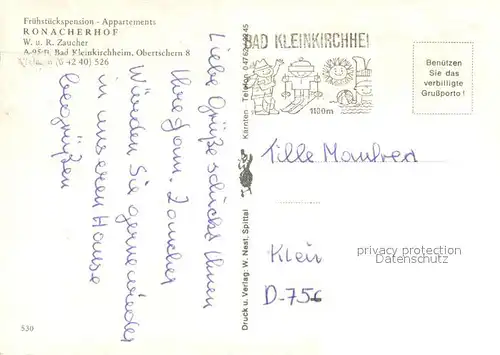 Frühstückspension - Appartements
RONACHERHOF
W. u. R. Zaucher
Bad Kleinkirchheim, Obertschern 8
Telefon (0 42 40) 526
Liebe Grüße schickt Ihnen
Ihre Fam. Zaucher
Würden Sie gerne wieder
in unserem Hause
begrüßen
530
Druck u. Verlag: W. Nest, Spittal
Kärnten Telefon 0 47 62
BAD KLEINKIRCHHEI
1100m
Benützen
Sie das
verbilligte
Grußporto!
Tille Manfred
Klein
D-756
privacy protection
Datenschutz